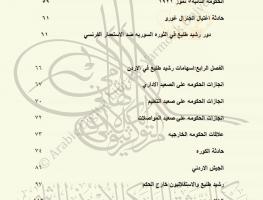 الحكومة الثانية، تموز ١٩٢١ ٥٩
حادثة اغتيال الجنرال غورو ٦١
دور رشيد طليع في الثوره السوريه ضد الاستعمار الفرنسي ٦١
الفصل الرابع:اسهامات رشيد طليع في الاردن ٦٦
انجازات الحكومه على الصعيد الاداري ٦٧
انجازات الحكومه على صعيد التعليم ٧٠
انجازات الحكومه على صعيد المواصلات ٧٢
علاقات الحكومه الخارجيه ٧٣
حادثة الكوره ٧٤
الجيش الاردني ٨٤
رشيد طليع والاستقلاليون خارج الحكم ٩٧